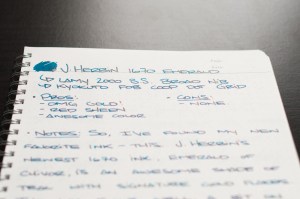 J. HERBIN 1670 EMERALD
↳ LAMY 2000 B.S. BROAD NIB
↳ KYOKUTO FOB COOP DOT GRID
• PROS:
- OMG GOLD!
- RED SHEEN
- AWESOME COLOR
• CONS:
- NONE
• NOTES: SO, I'VE FOUND MY NEW
FAVORITE INK - THIS. J. HERBIN'S
NEWEST 1670 INK, EMERALD OF
CHIVOR, IS AN AWESOME SHADE OF
TEAL WITH SIGNATURE GOLD FLAKES